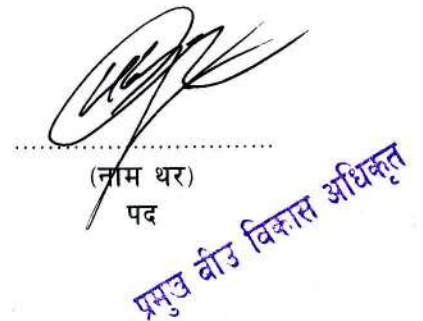 ....................................................
(नाम थर)
पद
प्रमुख बीउ विकास अधिकृत